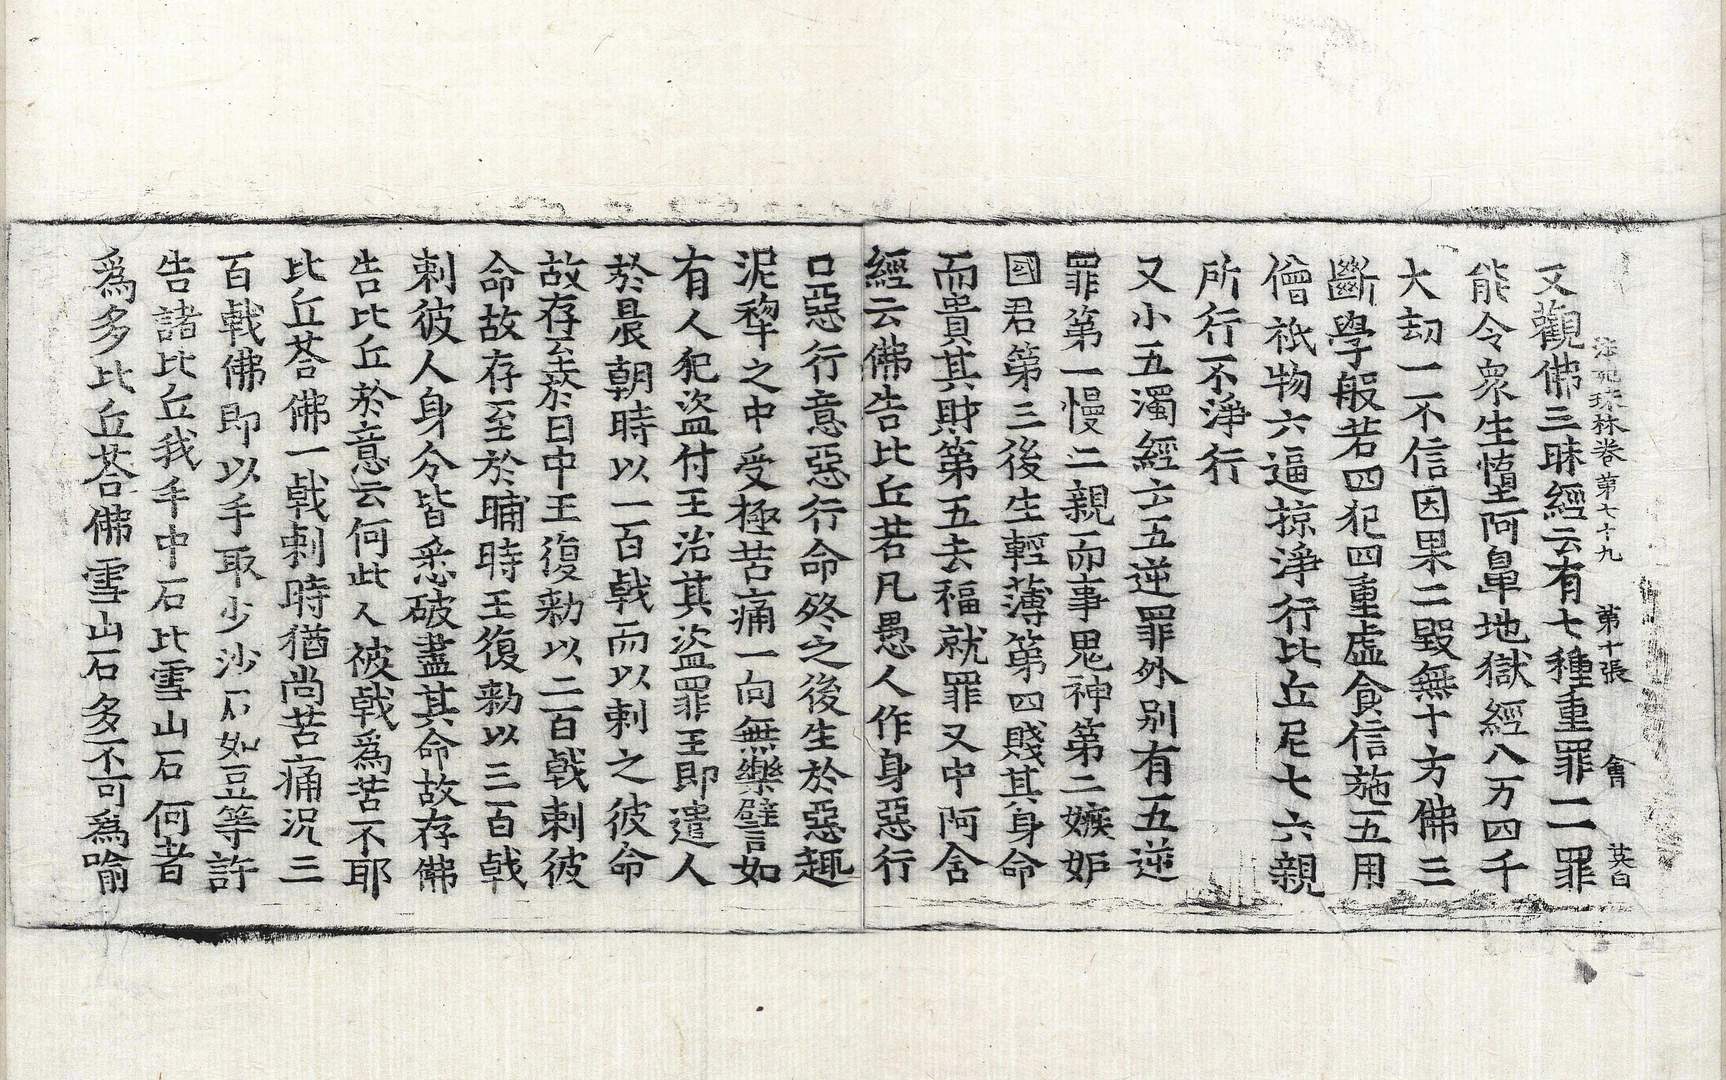 法苑珠林卷第七十九 第十張 會 英白
又觀佛三昧經云有七種重罪一一罪
能令衆生墮阿鼻地獄經八万四千
大劫一不信因果二毀無十方佛三
斷學般若四犯四重虛食信施五用
僧祇物六逼掠淨行比丘尼七六親
所行不淨行
又小五濁經云五逆罪外別有五逆
罪第一慢二親而事鬼神第二嫉妒
國君第三後生輕薄第四賤其身命
而貴其財第五去福就罪又中阿含
經云佛告比丘若凡愚人作身惡行
口惡行意惡行命終之後生於惡趣
泥犂之中受極苦痛一向無樂譬如
有人犯盜付王治其盜罪王即遣人
於晨朝時以一百戟而以刺之彼命
故存至於日中王復勑以二百戟刺彼
命故存至於晡時王復勑以三百戟
刺彼人身分皆悉破盡其命故存佛
告比丘於意云何此人被戟爲苦不耶
比丘荅佛一戟刺時猶尚苦痛況三
百戟佛即以手取少沙石如豆等許
告諸比丘我手中石比雪山石何者
爲多比丘荅佛雪山石多不可爲喻